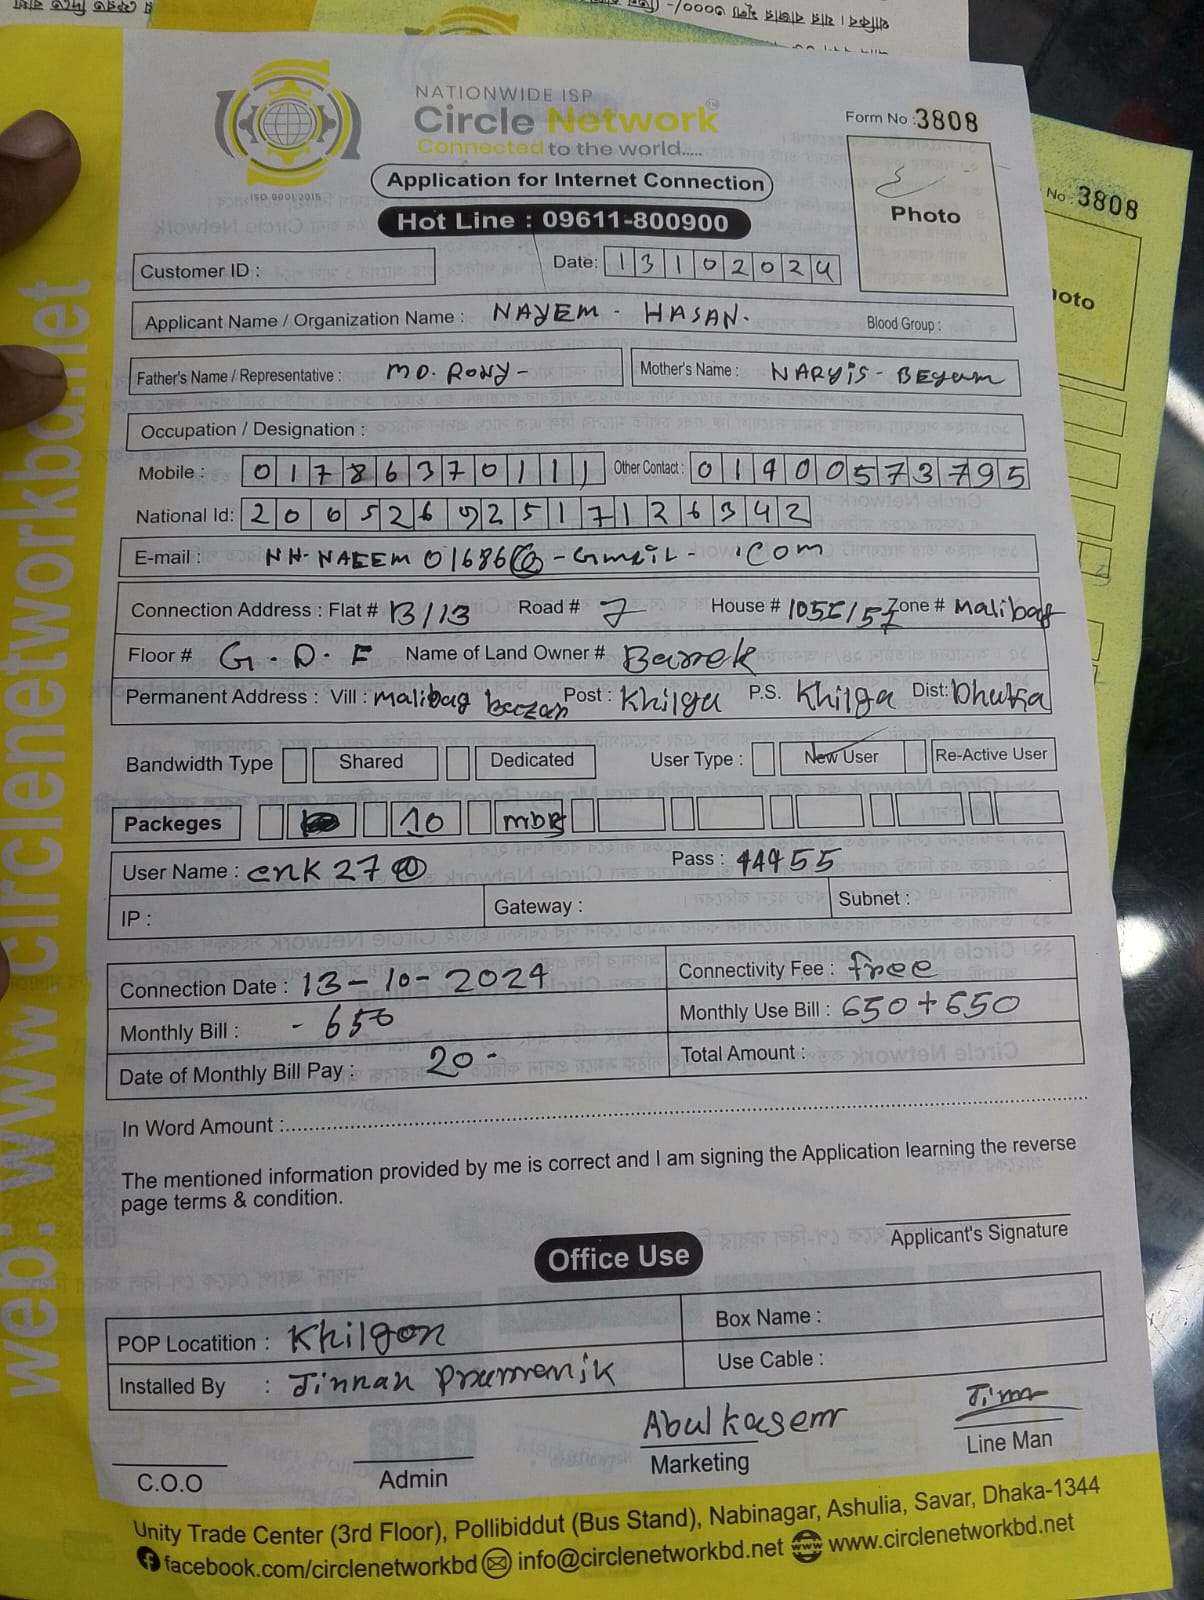 NATIONWIDE ISP
Circle Network
Connected to the world.....
ISO 9001:2015
Form No : 3808
Application for Internet Connection
Photo
Hot Line : 09611-800900
No : 3808
Customer ID :
Date: 13102024
Applicant Name / Organization Name : NAYEM - HASAN.
Blood Group :
Father's Name / Representative : MD. RONY -
Mother's Name : NARYIS - BEYUM
Occupation / Designation :
Mobile : 01786370111
Other Contact : 01900573795
National Id: 20052692517126342
E-mail : NH-NAEEM 01686@ - Gmail - .Com
Connection Address : Flat # B/13 Road # 7 House # 1055/57 Zone # Malibag
Floor # G.D.F Name of Land Owner # Barrek
Permanent Address : Vill : Malibag bazar Post : Khilga P.S. Khilga Dist: Dhaka
Bandwidth Type Shared Dedicated User Type : New User Re-Active User
Packeges 10 mbp
User Name : cnk 270 Pass : 44455
IP : Gateway : Subnet :
Connection Date : 13-10-2024
Connectivity Fee : free
Monthly Bill : - 650
Monthly Use Bill : 650 + 650
Date of Monthly Bill Pay : 20 -
Total Amount :
In Word Amount :
The mentioned information provided by me is correct and I am signing the Application learning the reverse
page terms & condition.
Applicant's Signature
Office Use
POP Locatition : Khilgon
Box Name :
Installed By : Jinnah Pramanik
Use Cable :
Abul kasem
C.O.O
Admin
Marketing
Line Man
Unity Trade Center (3rd Floor), Pollibiddut (Bus Stand), Nabinagar, Ashulia, Savar, Dhaka-1344
facebook.com/circlenetworkbd info@circlenetworkbd.net www.circlenetworkbd.net
web: www.circlenetworkbd.net